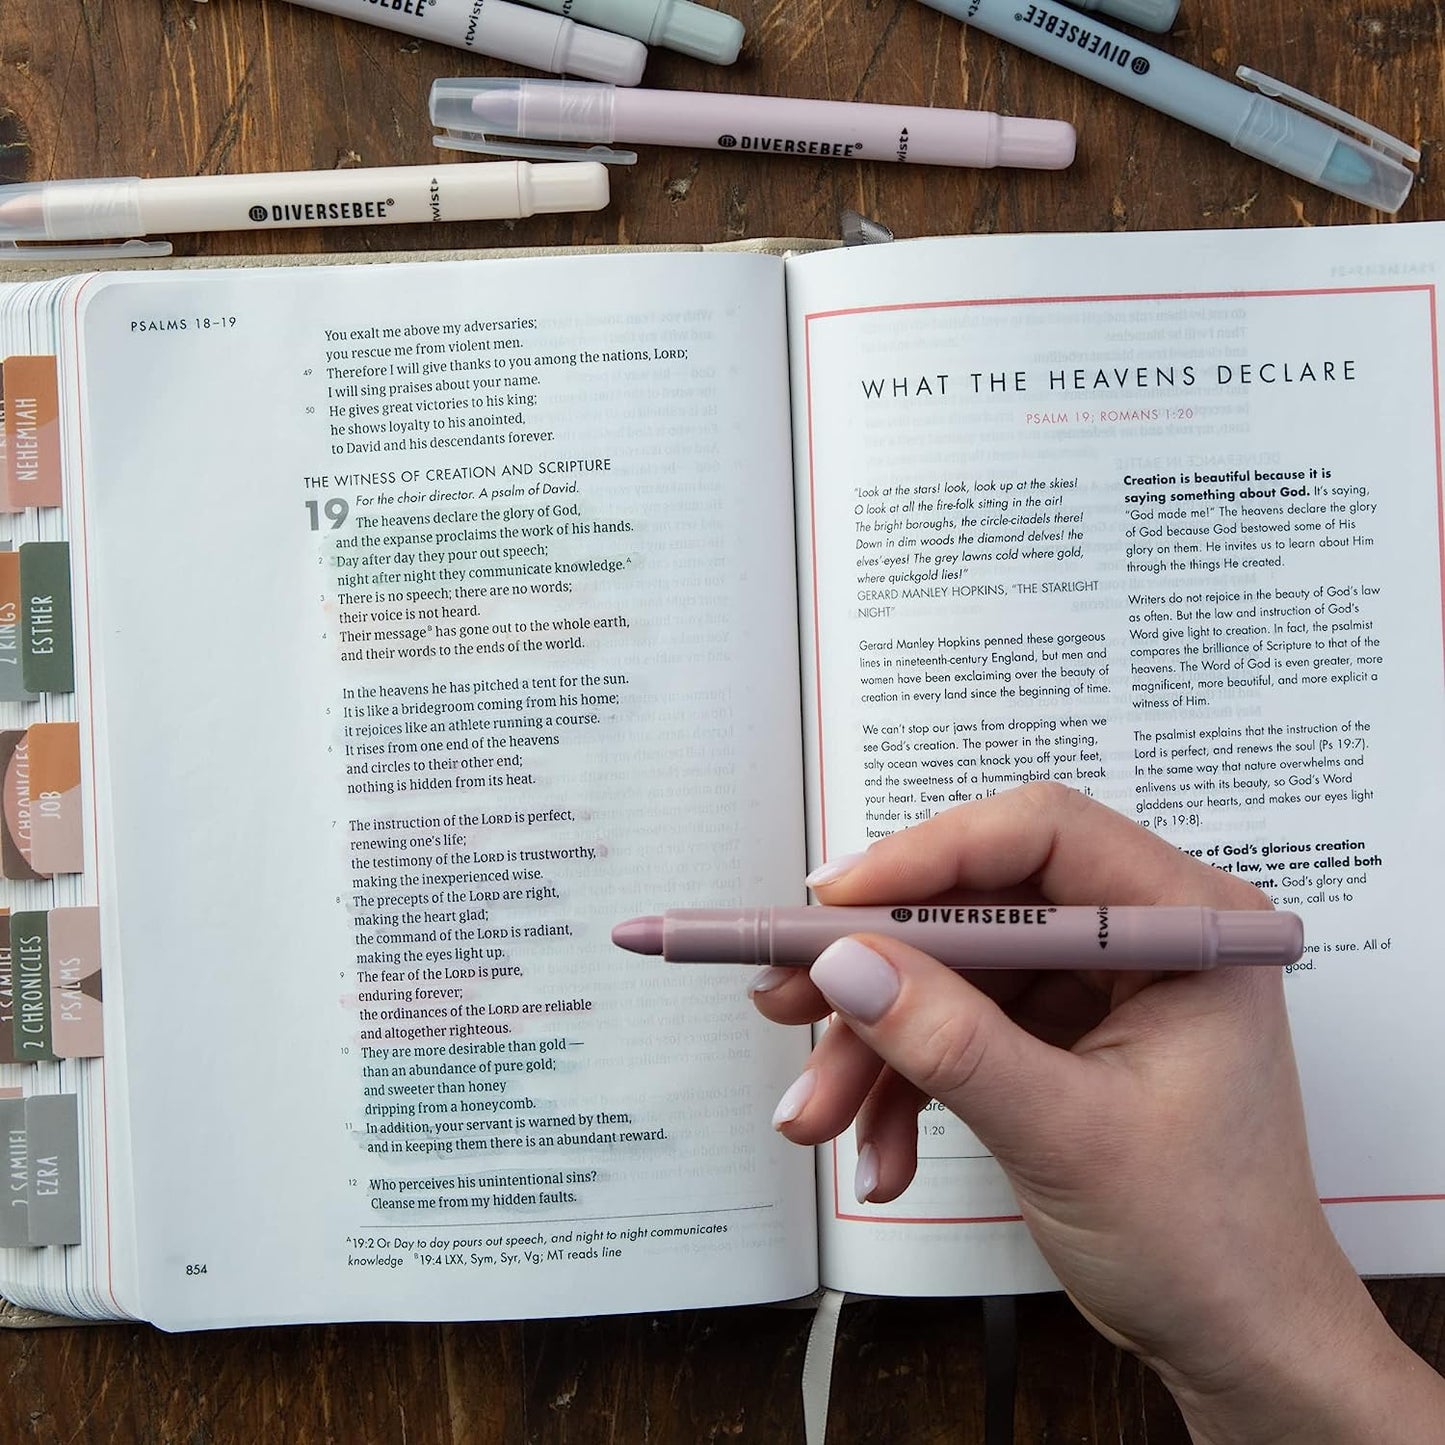 DIVERSEBEE®
twist
twist
DIVERSEBEE®
twist
DIVERSEBEE®
twist
DIVERSEBEE®
twist
PSALMS 18–19
You exalt me above my adversaries;
you rescue me from violent men.
49 Therefore I will give thanks to you among the nations, LORD;
I will sing praises about your name.
50 He gives great victories to his king;
he shows loyalty to his anointed,
to David and his descendants forever.
THE WITNESS OF CREATION AND SCRIPTURE
19 For the choir director. A psalm of David.
The heavens declare the glory of God,
and the expanse proclaims the work of his hands.
2 Day after day they pour out speech;
night after night they communicate knowledge.A
3 There is no speech; there are no words;
their voice is not heard.
4 Their messageB has gone out to the whole earth,
and their words to the ends of the world.
In the heavens he has pitched a tent for the sun.
5 It is like a bridegroom coming from his home;
it rejoices like an athlete running a course.
6 It rises from one end of the heavens
and circles to their other end;
nothing is hidden from its heat.
7 The instruction of the LORD is perfect,
renewing one's life;
the testimony of the LORD is trustworthy,
making the inexperienced wise.
8 The precepts of the LORD are right,
making the heart glad;
the command of the LORD is radiant,
making the eyes light up.
9 The fear of the LORD is pure,
enduring forever;
the ordinances of the LORD are reliable
and altogether righteous.
10 They are more desirable than gold —
than an abundance of pure gold;
and sweeter than honey
dripping from a honeycomb.
11 In addition, your servant is warned by them,
and in keeping them there is an abundant reward.
12 Who perceives his unintentional sins?
Cleanse me from my hidden faults.
A19:2 Or Day to day pours out speech, and night to night communicates
knowledge B19:4 LXX, Sym, Syr, Vg; MT reads line
854
NEHEMIAH
2 KINGS
ESTHER
1 CHRONICLES
JOB
1 SAMUEL
2 CHRONICLES
PSALMS
2 SAMUEL
EZRA
WHAT THE HEAVENS DECLARE
PSALM 19; ROMANS 1:20
"Look at the stars! look, look up at the skies!
O look at all the fire-folk sitting in the air!
The bright boroughs, the circle-citadels there!
Down in dim woods the diamond delves! the
elves'-eyes! The grey lawns cold where gold,
where quickgold lies!"
GERARD MANLEY HOPKINS, "THE STARLIGHT
NIGHT"
Gerard Manley Hopkins penned these gorgeous
lines in nineteenth-century England, but men and
women have been exclaiming over the beauty of
creation in every land since the beginning of time.
We can't stop our jaws from dropping when we
see God's creation. The power in the stinging,
salty ocean waves can knock you off your feet,
and the sweetness of a hummingbird can break
your heart. Even after a it,
thunder is still
Creation is beautiful because it is
saying something about God. It's saying,
"God made me!" The heavens declare the glory
of God because God bestowed some of His
glory on them. He invites us to learn about Him
through the things He created.
Writers do not rejoice in the beauty of God's law
as often. But the law and instruction of God's
Word give light to creation. In fact, the psalmist
compares the brilliance of Scripture to that of the
heavens. The Word of God is even greater, more
magnificent, more beautiful, and more explicit a
witness of Him.
The psalmist explains that the instruction of the
Lord is perfect, and renews the soul (Ps 19:7).
In the same way that nature overwhelms and
enlivens us with its beauty, so God's Word
gladdens our hearts, and makes our eyes light
up (Ps 19:8).
of God's glorious creation
law, we are called both
God's glory and
sun, call us to
one is sure. All of
good.
1:20
DIVERSEBEE®
twist